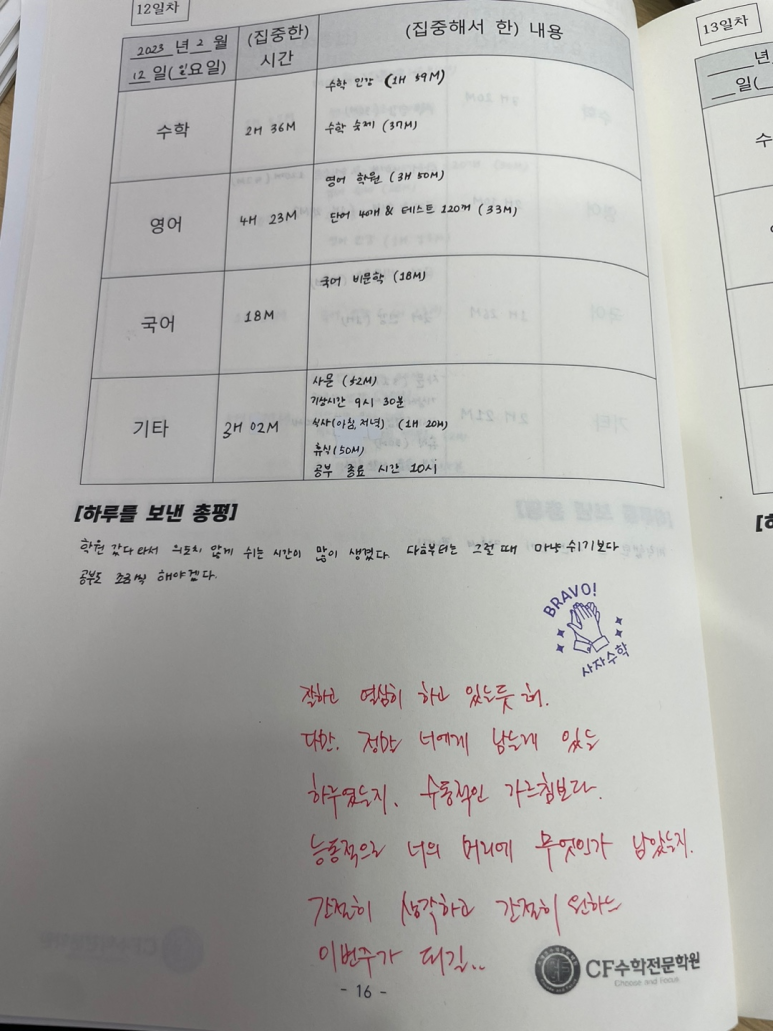 12일차
13일차
2023 년 2 월
12 일(일요일)
(집중한)
시간
(집중해서 한) 내용
수학
2H 36M
수학 인강 (1H 59M)
수학 숙제 (37M)
영어
4H 23M
영어 학원 (3H 50M)
단어 40개 & 테스트 120개 (33M)
국어
18M
국어 비문학 (18M)
기타
3H 02M
사문 (52M)
기상시간 9시 30분
식사(아침,저녁) (1H 20M)
휴식(50M)
공부 종료 시간 10시
[하루를 보낸 총평]
학원 갔다 와서 의도치 않게 쉬는 시간이 많이 생겼다. 다음부터는 그럴 때 마냥 쉬기보다
공부도 조금씩 해야겠다.
BRAVO!
사자수학
잘하고 열심히 하고 있는듯 해.
다만, 정말 너에게 남는게 있는
하루였는지, 수동적인 가르침보다.
능동적으로 너의 머리에 무엇인가 남았는지.
간절히 생각하고 간절히 원하는
이번주가 되길..
CF수학전문학원
Choose and Focus
- 16 -
년
일(